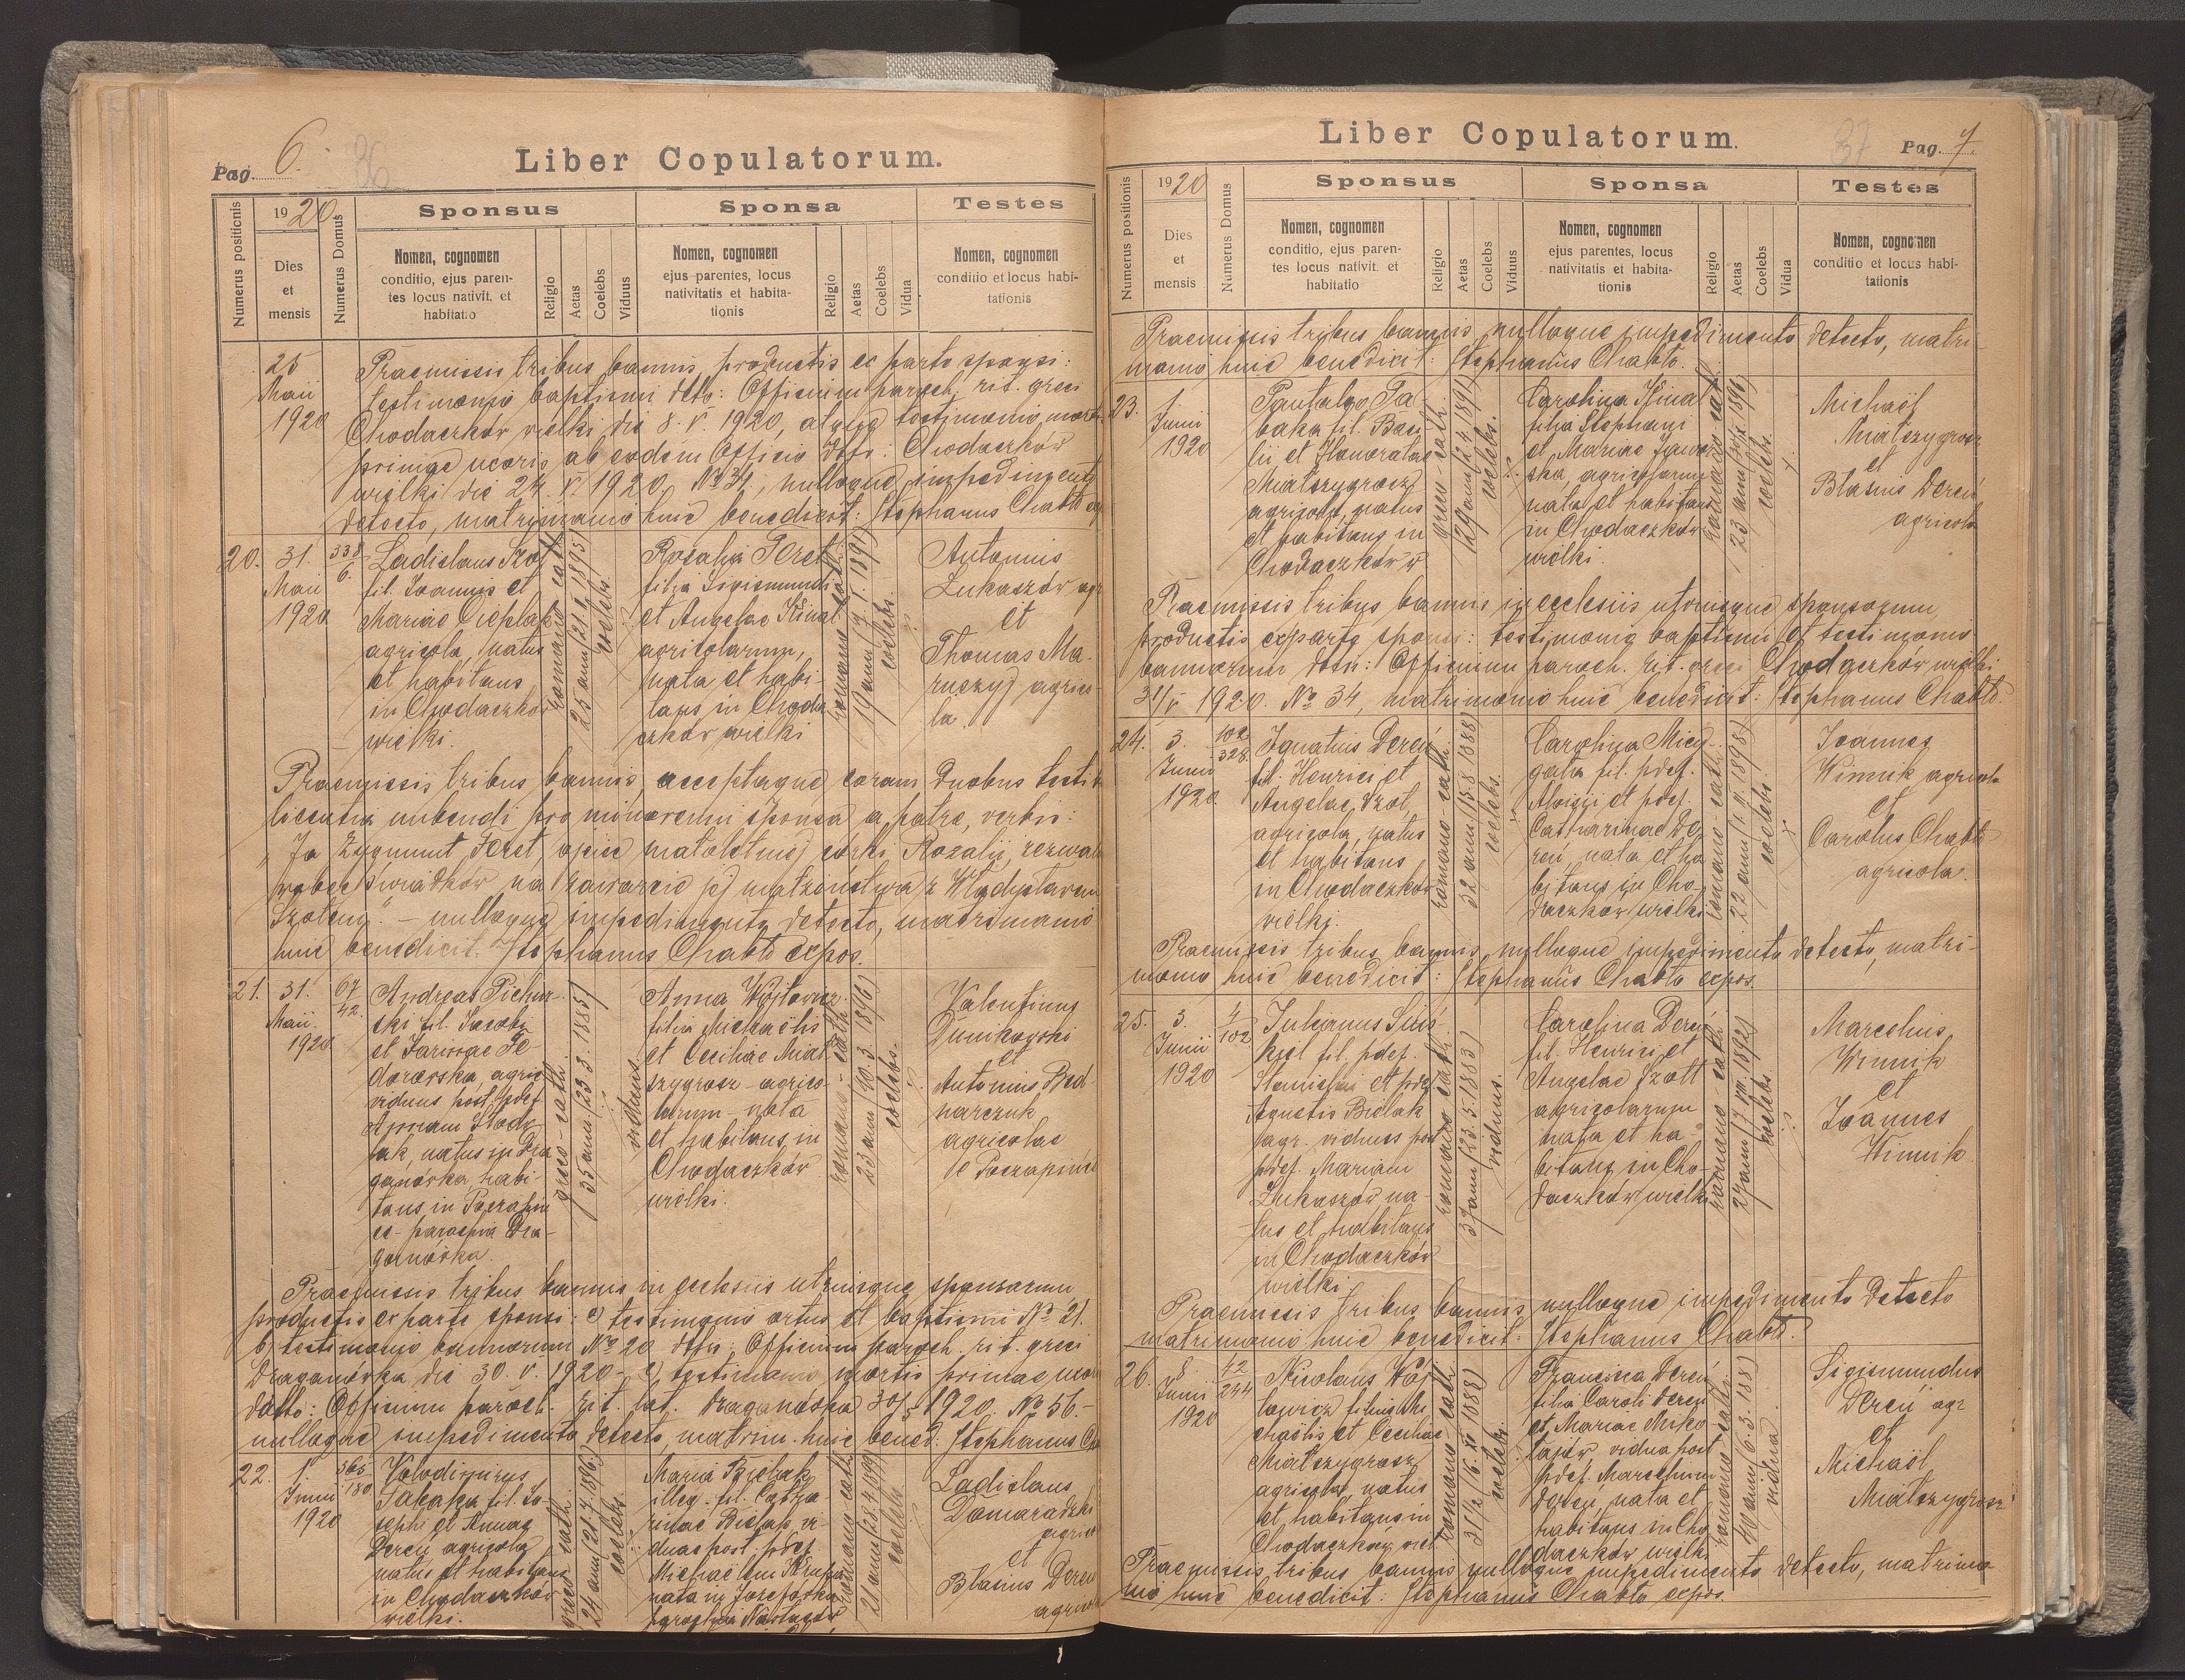 Pag. 6.
Liber Copulatorum.
Numerus positionis
1920
Dies
et
mensis
Numerus Domus
Sponsus
Nomen, cognomen
conditio, ejus paren-
tes locus nativit. et
habitatio
Religio
Aetas
Coelebs
Viduus
Sponsa
Nomen, cognomen
ejus parentes, locus
nativitatis et habita-
tionis
Religio
Aetas
Coelebs
Vidua
Testes
Nomen, cognomen
conditio et locus habi-
tationis
25
Maii
1920
Praemissis tribus bannis, productis ex parte sponsi:
testimonio baptismi dtto: Officium paroch. rit. greci
Chodaczków wielki die 8. V. 1920, atque testimonio mortis
primae uxoris ab eodem Officio dtto: Chodaczków
wielki die 24. V. 1920 No 31., nulloque impedimento
detecto, matrimonio huic benedicit: Stephanus Chabło
20.
31.
Maii
1920
338
6.
Ladislaus Szot
fil. Joannis et
Mariae Cieplak
agricola, natus
et habitans
in Chodaczków
wielki.
romano cath.
25 anni (21. 1895)
coelebs.
Rosalia Feret
filia Sigismundi
et Angelae Kinal
agricolarum,
nata et habi-
tans in Choda
czków wielki
romano cath.
19 anni (7. 1. 1891)
coelebs.
Antonius
Łukaszów agr
et
Thomas Ma-
ruczyj agrico-
la.
Praemissis tribus bannis, acceptaque coram duobus testib
licentia nubendi pro minorenni sponsa a patre, verbis:
"Ja Zygmunt Feret, ojciec małoletniej córki Rozalij, zezwalam
wobec świadków na zawarcie jej małżeństwa z Władysławem
Szotem". – nulloque impedimento detecto, matrimonio
huic benedicit. Stephanus Chabło expos.
21.
31.
Maii.
1920
67
42.
Andreas Pichur-
ski fil. Jacobi
et Parinae Fe-
dorowska, agric
viduus post. pdef
Annam Słodo-
lak, natus in Dra
ganówka, habi-
tans in Poczapin
ce - parochia Dra-
ganówka.
greco - cath.
35 anni (23. 3. 1885)
viduus.
Anna Wojtowicz
filia Michaëlis
et Ceciliae Miał
szygrosz - agrico-
larum - nata
et habitans in
Chodaczków
wielki.
romano - cath.
23 anni (10. 3. 1896)
coelebs.
Valentinus
Dunikowski
et
Antonius Bed
narczuk
agricolae
Praemissis tribus bannis in ecclesiis utriusque sponsorum
productis ex parte sponsi: a) testimonio ortus et baptismi No 21.
b) testimonio bannorum No 20 dtto: Officium paroch. rit. greci
Draganówka die 30. V. 1920 - c) testimonio mortis primae uxoris
datto: Officium paroch. rit. lat. Draganówka 30/5 1920. No 56. -
nulloque impedimento detecto, matrim. huic bened: Stephanus
22.
1.
Junii
1920
365
180
Volodimirus
Tabaka fil. Jo-
sephi et Annae
Dereń agricola
natus et habitans
in Chodaczków
wielki.
greco cath.
24 anni (21. 7. 1896)
coelebs.
Maria Bielak
illeg. fil. Catha-
rinae Bielak vi-
duae post. pdef.
Michaëlem
nata in Józefówka
parochia Nastasów
romano cath.
21 anni (28. 4. 1899)
coelebs
Ladislaus
Domaradzki
agricola
et
Blasius Dereń
agricola
Liber Copulatorum.
37
Pag. 7.
Numerus positionis
1920
Dies
et
mensis
Numerus Domus
Sponsus
Nomen, cognomen
conditio, ejus paren-
tes locus nativit. et
habitatio
Religio
Aetas
Coelebs
Viduus
Sponsa
Nomen, cognomen
ejus parentes, locus
nativitatis et habita-
tionis
Religio
Aetas
Coelebs
Vidua
Testes
Nomen, cognomen
conditio et locus habi-
tationis
Praemissis tribus bannis, nulloque impedimento detecto, matri-
monio huic benedicit: Stephanus Chabło.
23.
1.
Junii
1920
Pantaleo Ta-
baka fil. Basi-
lii et Honoratae
Miałszygrosz
agricola, natus
et habitans in
Chodaczków w
greco - cath.
29 anni (2. 4. 1891)
coelebs.
Carolina Kinal
filia Stephani
et Mariae Jawor-
ska, agricolarum
nata et habitans
in Chodaczków
wielki.
romano cath.
23 anni
coelebs.
Michaël
Miałszygrosz
et
Blasius Dereń
agricola
Praemissis tribus bannis in ecclesiis utriusque sponsorum,
productis ex parte sponsi: testimonio baptismi et testimonio
bannorum dtto: Officium paroch. rit. greci Chodaczków wielki
31/V 1920. No 34, matrimonio huic benedicit: Stephanus Chabło.
24.
3.
Junii
1920.
102
328.
Ignatius Dereń
fil. Henrici et
Angelae Szot,
agricola, natus
et habitans
in Chodaczków
wielki.
romano cath.
32 anni (15. 8. 1888)
coelebs.
Carolina Micy-
gała fil. pdef.
Aloisii et pdef.
Catharinae De-
reń, nata et ha
bitans in Cho-
daczków wielki
romano - cath.
22 anni (1898)
coelebs.
Joannes
Winnik agricola
et
Carolus Chabło
agricola.
Praemissis tribus bannis, nulloque impedimento detecto, matri-
monio huic benedicit: Stephanus Chabło expos.
25.
3.
Junii
1920
4
102
Julianus Siuś
kiel fil. pdef.
Stanislai et pdef
Agnetis Bielak
agr. viduus post
pdef. Mariam
Łukaszów na-
tus et habitans
in Chodaczków
wielki
romano cath.
37 anni (23. 5. 1883)
viduus.
Carolina Dereń
fil. Henrici et
Angelae Szott
agricolarum
nata et ha-
bitans in Cho-
daczków wielki
romano - cath
27 anni (7. VII. 1892)
coelebs.
Marcelius
Winnik
et
Joannes
Winnik
Praemissis tribus bannis, nulloque impedimento detecto
matrimonio huic benedicit: Stephanus Chabło.
26.
8
Junii
1920
42
244
Nicolaus Woj
towicz filius Mi
chaëlis et Ceciliae
Miałszygrosz
agricola, natus
et habitans in
Chodaczków wiel
romano - cath
31 1/2 (6. XI 1888)
coelebs.
Francisca Dereń
filia Caroli Dereń
et Mariae Misko
łajów vidua post
pdef. Marcelium
Dereń, nata et
habitans in Cho
daczków wielk.
romano cath.
40 anni
vidua.
Sigismundus
Dereń agr
et
Michaël
Miałszygrosz
Praemissis tribus bannis nulloque impedimento detecto, matrimo
nio huic benedicit: Stephanus Chabło expos.